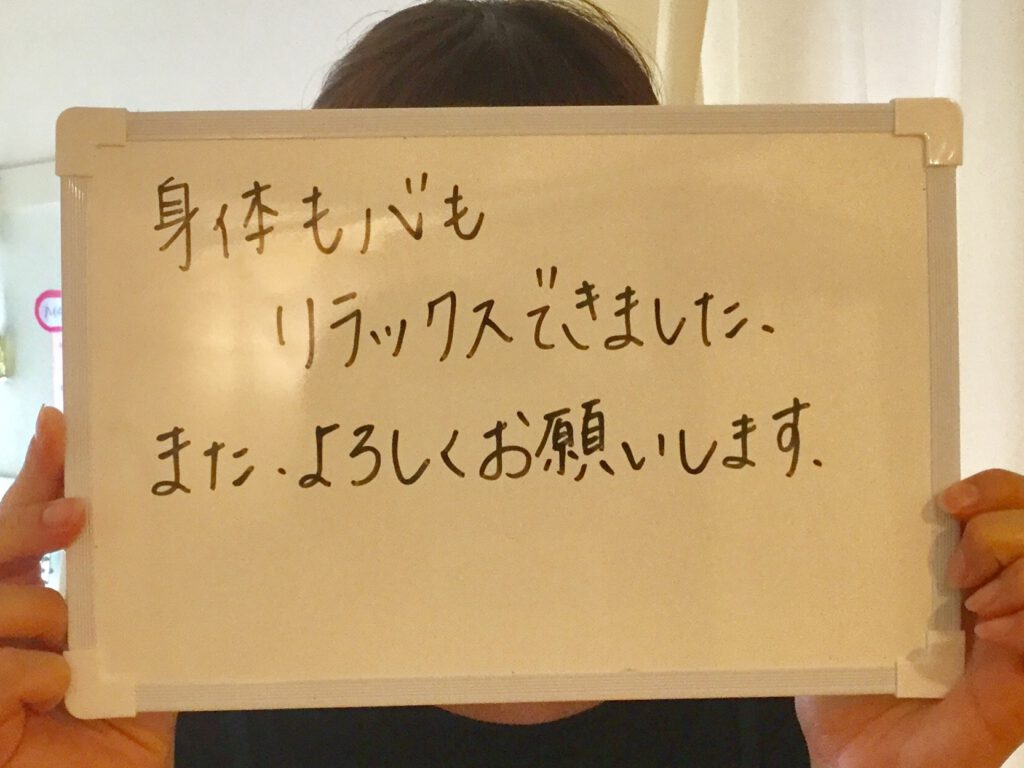 身体も心も
リラックスできました、
また、よろしくお願いします.